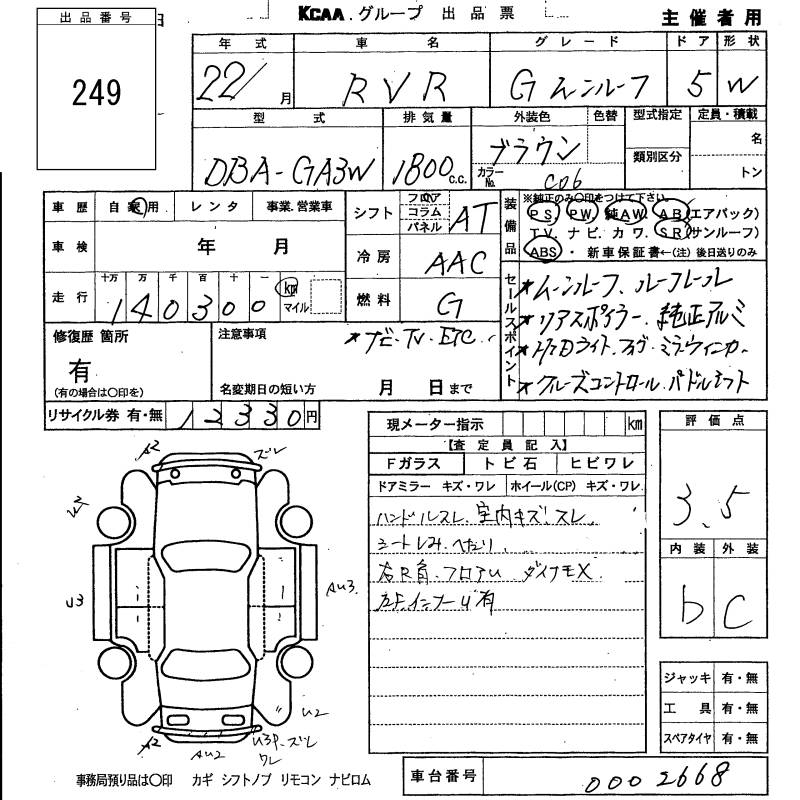 出品番号
249
KCAA.グループ 出品票
主催者用
年式 車名 グレード ドア 形状
22/ 月 RVR G ムーンルーフ 5 W
型式 排気量 外装色 色替 型式指定 定員・積載
DBA-GA3W 1800 c.c. ブラウン
類別区分
名
トン
カラーNo. C06
車歴 自家用 レンタ 事業.営業車
車検 年 月
走行 十万 万 千 百 十 一
140300 km マイル
シフト フロア コラム パネル AT
冷房 AAC
燃料 G
装備品
※純正のみ○印をつけて下さい。
PS PW 純AW AB(エアバック)
TV ナビ カワ SR(サンルーフ)
ABS ・新車保証書←(注)後日送りのみ
セールスポイント
★ムーンルーフ、ルーフレール
★リアスポイラー、純正アルミ
★クルーズコントロール パドルシフト
修復歴 箇所
有
(有の場合は○印を)
注意事項
★ナビ・TV・ETC
名変期日の短い方 月 日まで
リサイクル券 有・無 12330円
現メーター指示 km
【査定員記入】
Fガラス トビ石 ヒビワレ
ドアミラー キズ・ワレ ホイール(CP) キズ・ワレ
ハンドルスレ 室内キズ、スレ
シートしみ へたり
ダイナモX
評価点
3.5
内装 外装
b C
A2
ズレ
U3
AU3
U2
A2
AU2
U3P.ズレ
ワレ
ジャッキ 有・無
工具 有・無
スペアタイヤ 有・無
事務局預り品は○印 カギ シフトノブ リモコン ナビロム
車台番号 0002668